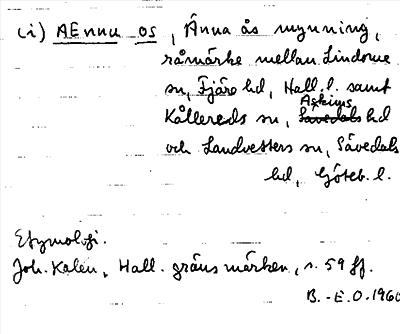 (i) AEnnu os, Änna ås mynning,
råmärke mellan Lindome
sn, Fjäre hd, Hall. l. samt
Kållereds sn, Askims hd
och Landvetters sn, Sävedals
hd, Göteb. l.
Etymologi.
Joh. Kalén, Hall. gränsmärken, s. 59 ff.
B.-E.O. 1960